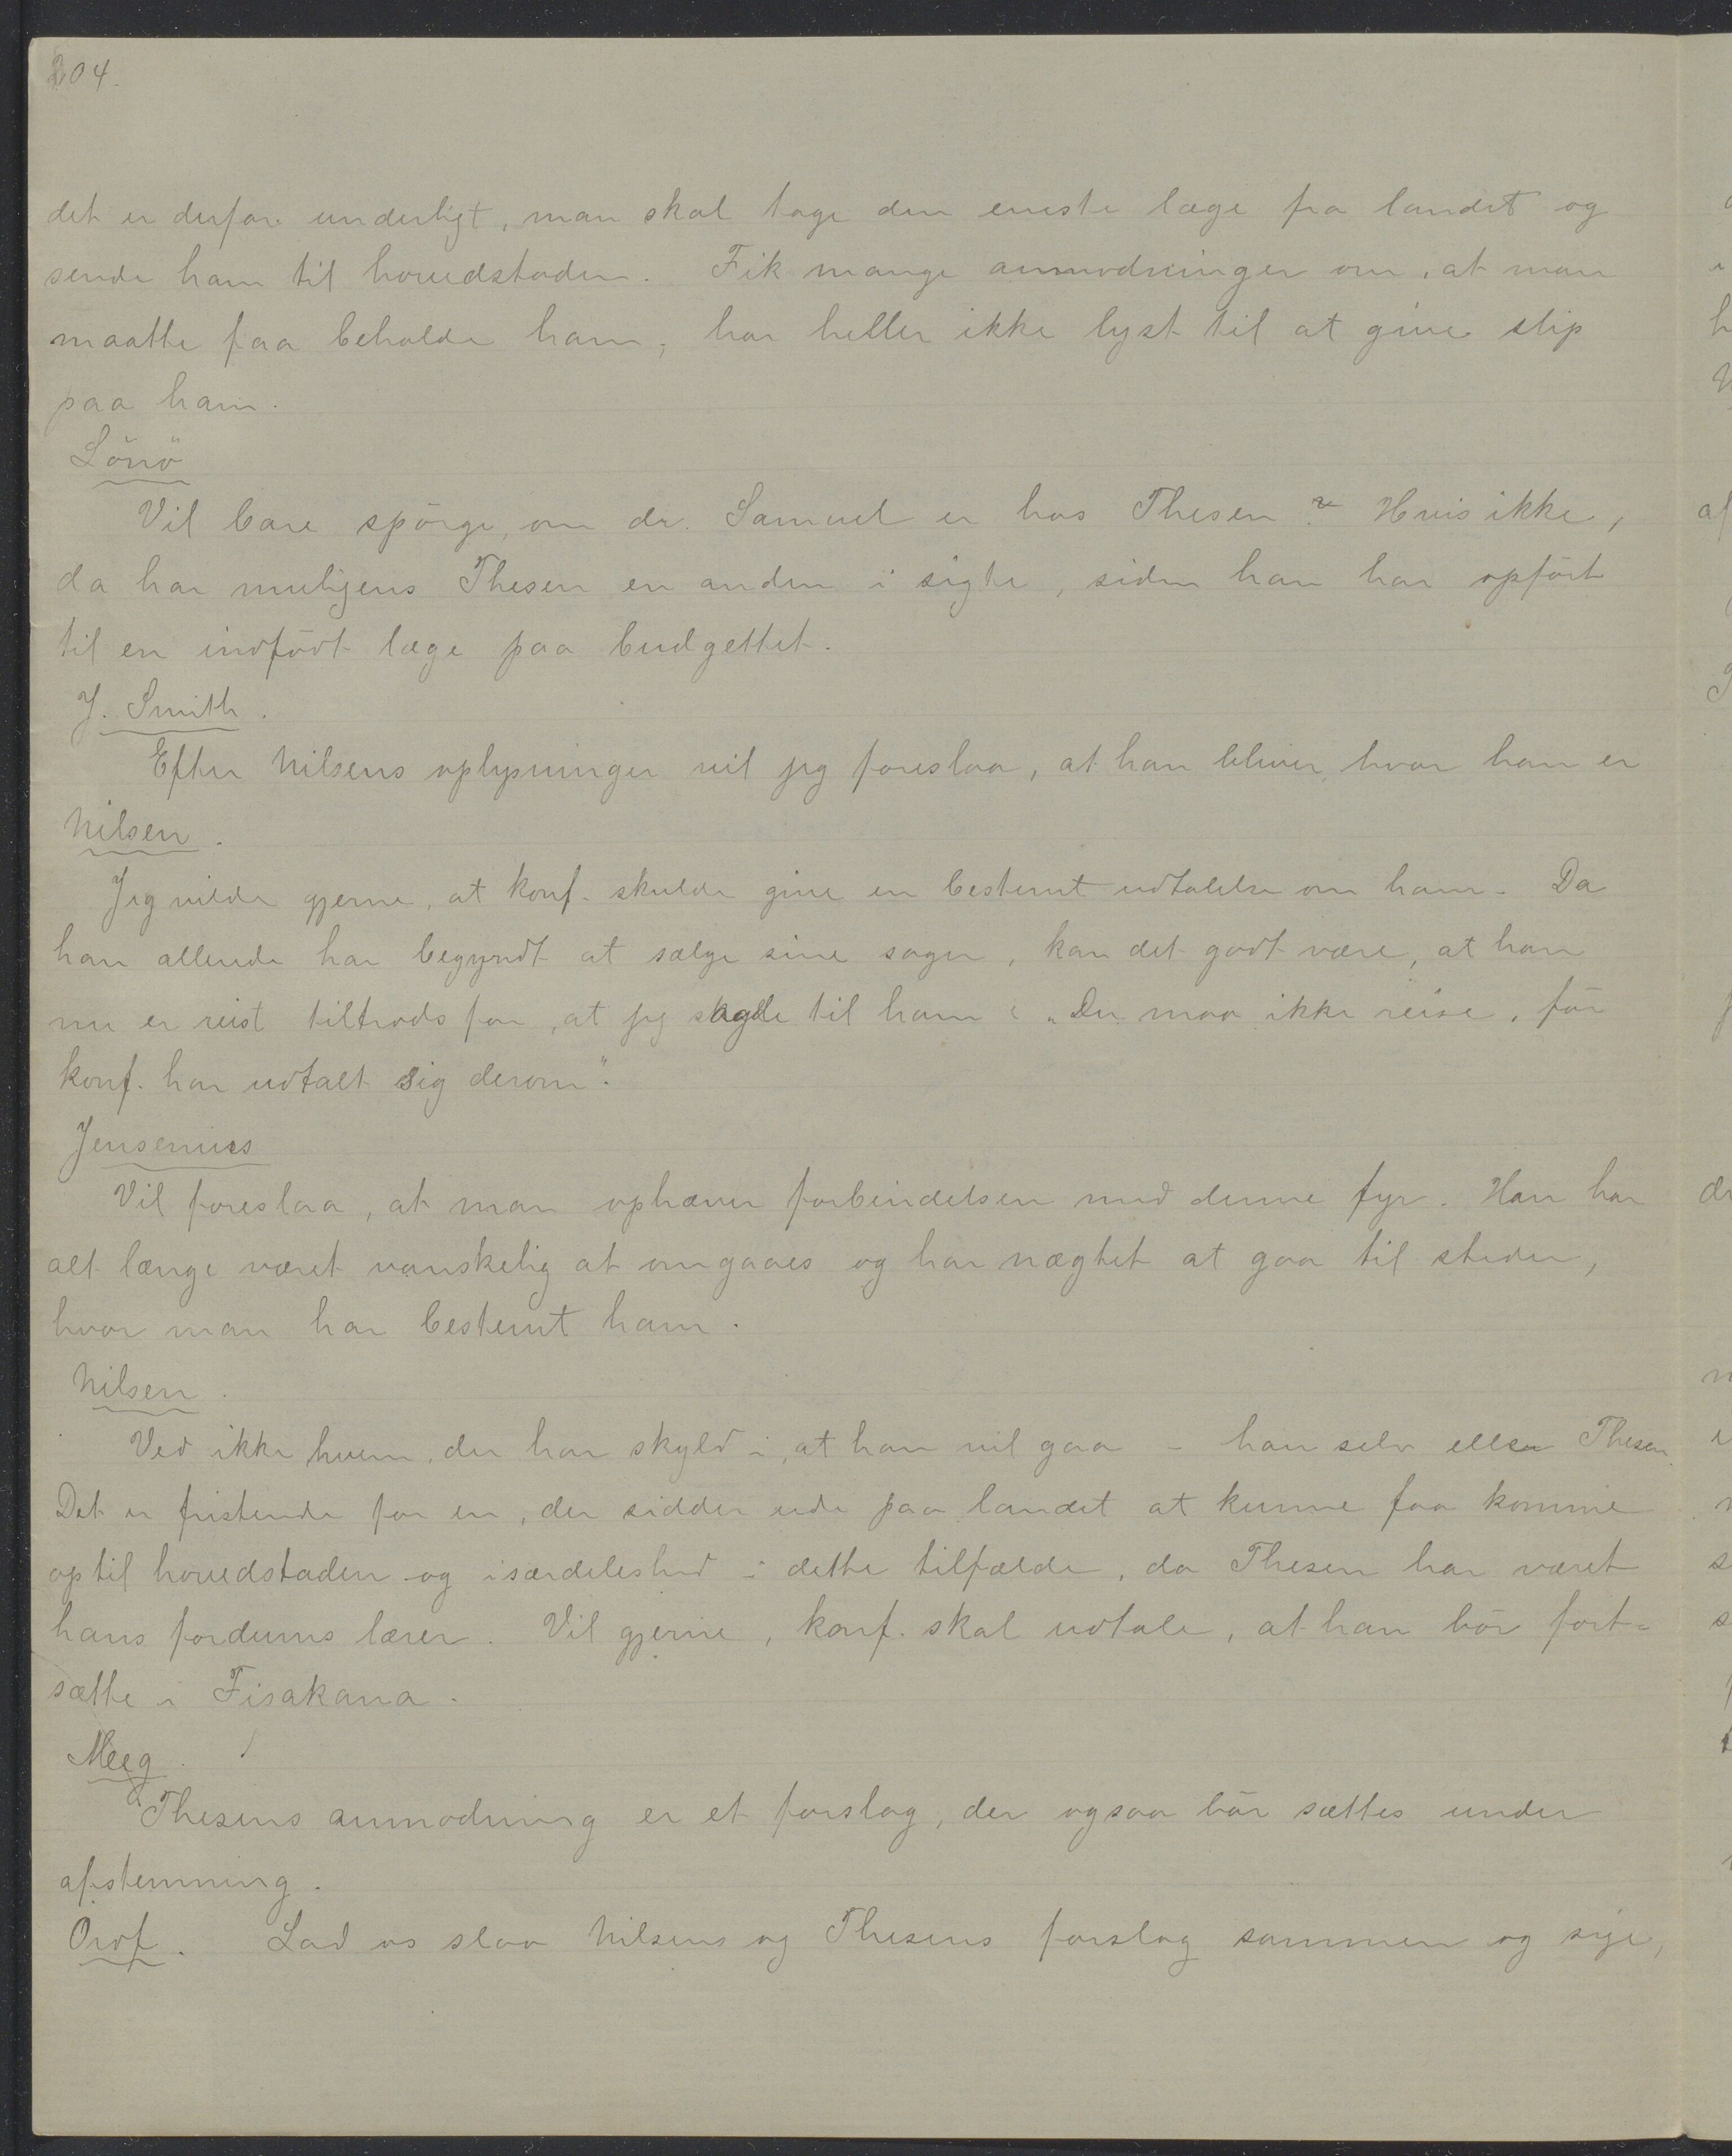 204.
det er derfor underligt, man skal tage den eneste læge fra landet og
sende ham til hovedstaden. Fik mange anmodninger om, at man
maatte faa beholde ham, har heller ikke lyst til at give slip
paa ham.
Lönö
Vil bare spörge, om dr. Samuel er hos Thesen? Hvis ikke,
da har muligens Thesen en anden i sigte, siden han har opfört
til en indfödt læge paa budgettet.
J. Smith.
Efter Nilsens oplysninger vil jeg foreslaa, at han bliver, hvor han er
Nilsen.
Jeg vilde gjerne, at konf. skulde give en bestemt udtalelse om ham. Da
han allerede har begyndt at sælge sine sager, kan det godt være, at han
nu er reist tiltrods for, at jeg sagde til ham: „Du maa ikke reise, för
konf. har udtalt sig derom“.
Jensenius
Vil foreslaa, at man ophæver forbindelsen med denne fyr. Han har
alt længe været vanskelig at omgaaes og har nægtet at gaa til steder,
hvor man har bestemt ham.
Nilsen.
Ved ikke hvem, der har skyld i, at han vil gaa – han selv eller Thesen
Det er fristende for en, der sidder ude paa landet at kunne faa komme
op til hovedstaden og isærdeleshed i dette tilfælde, da Thesen har været
hans fordums lærer. Vil gjerne, konf. skal udtale, at han bör fort=
sætte i Fisakana.
Meeg.
Thesens anmodning er et forslag, der ogsaa bör sættes under
afstemning.
Ordf. Lad os slaa Nilsens og Thesens forslag sammen og sige,